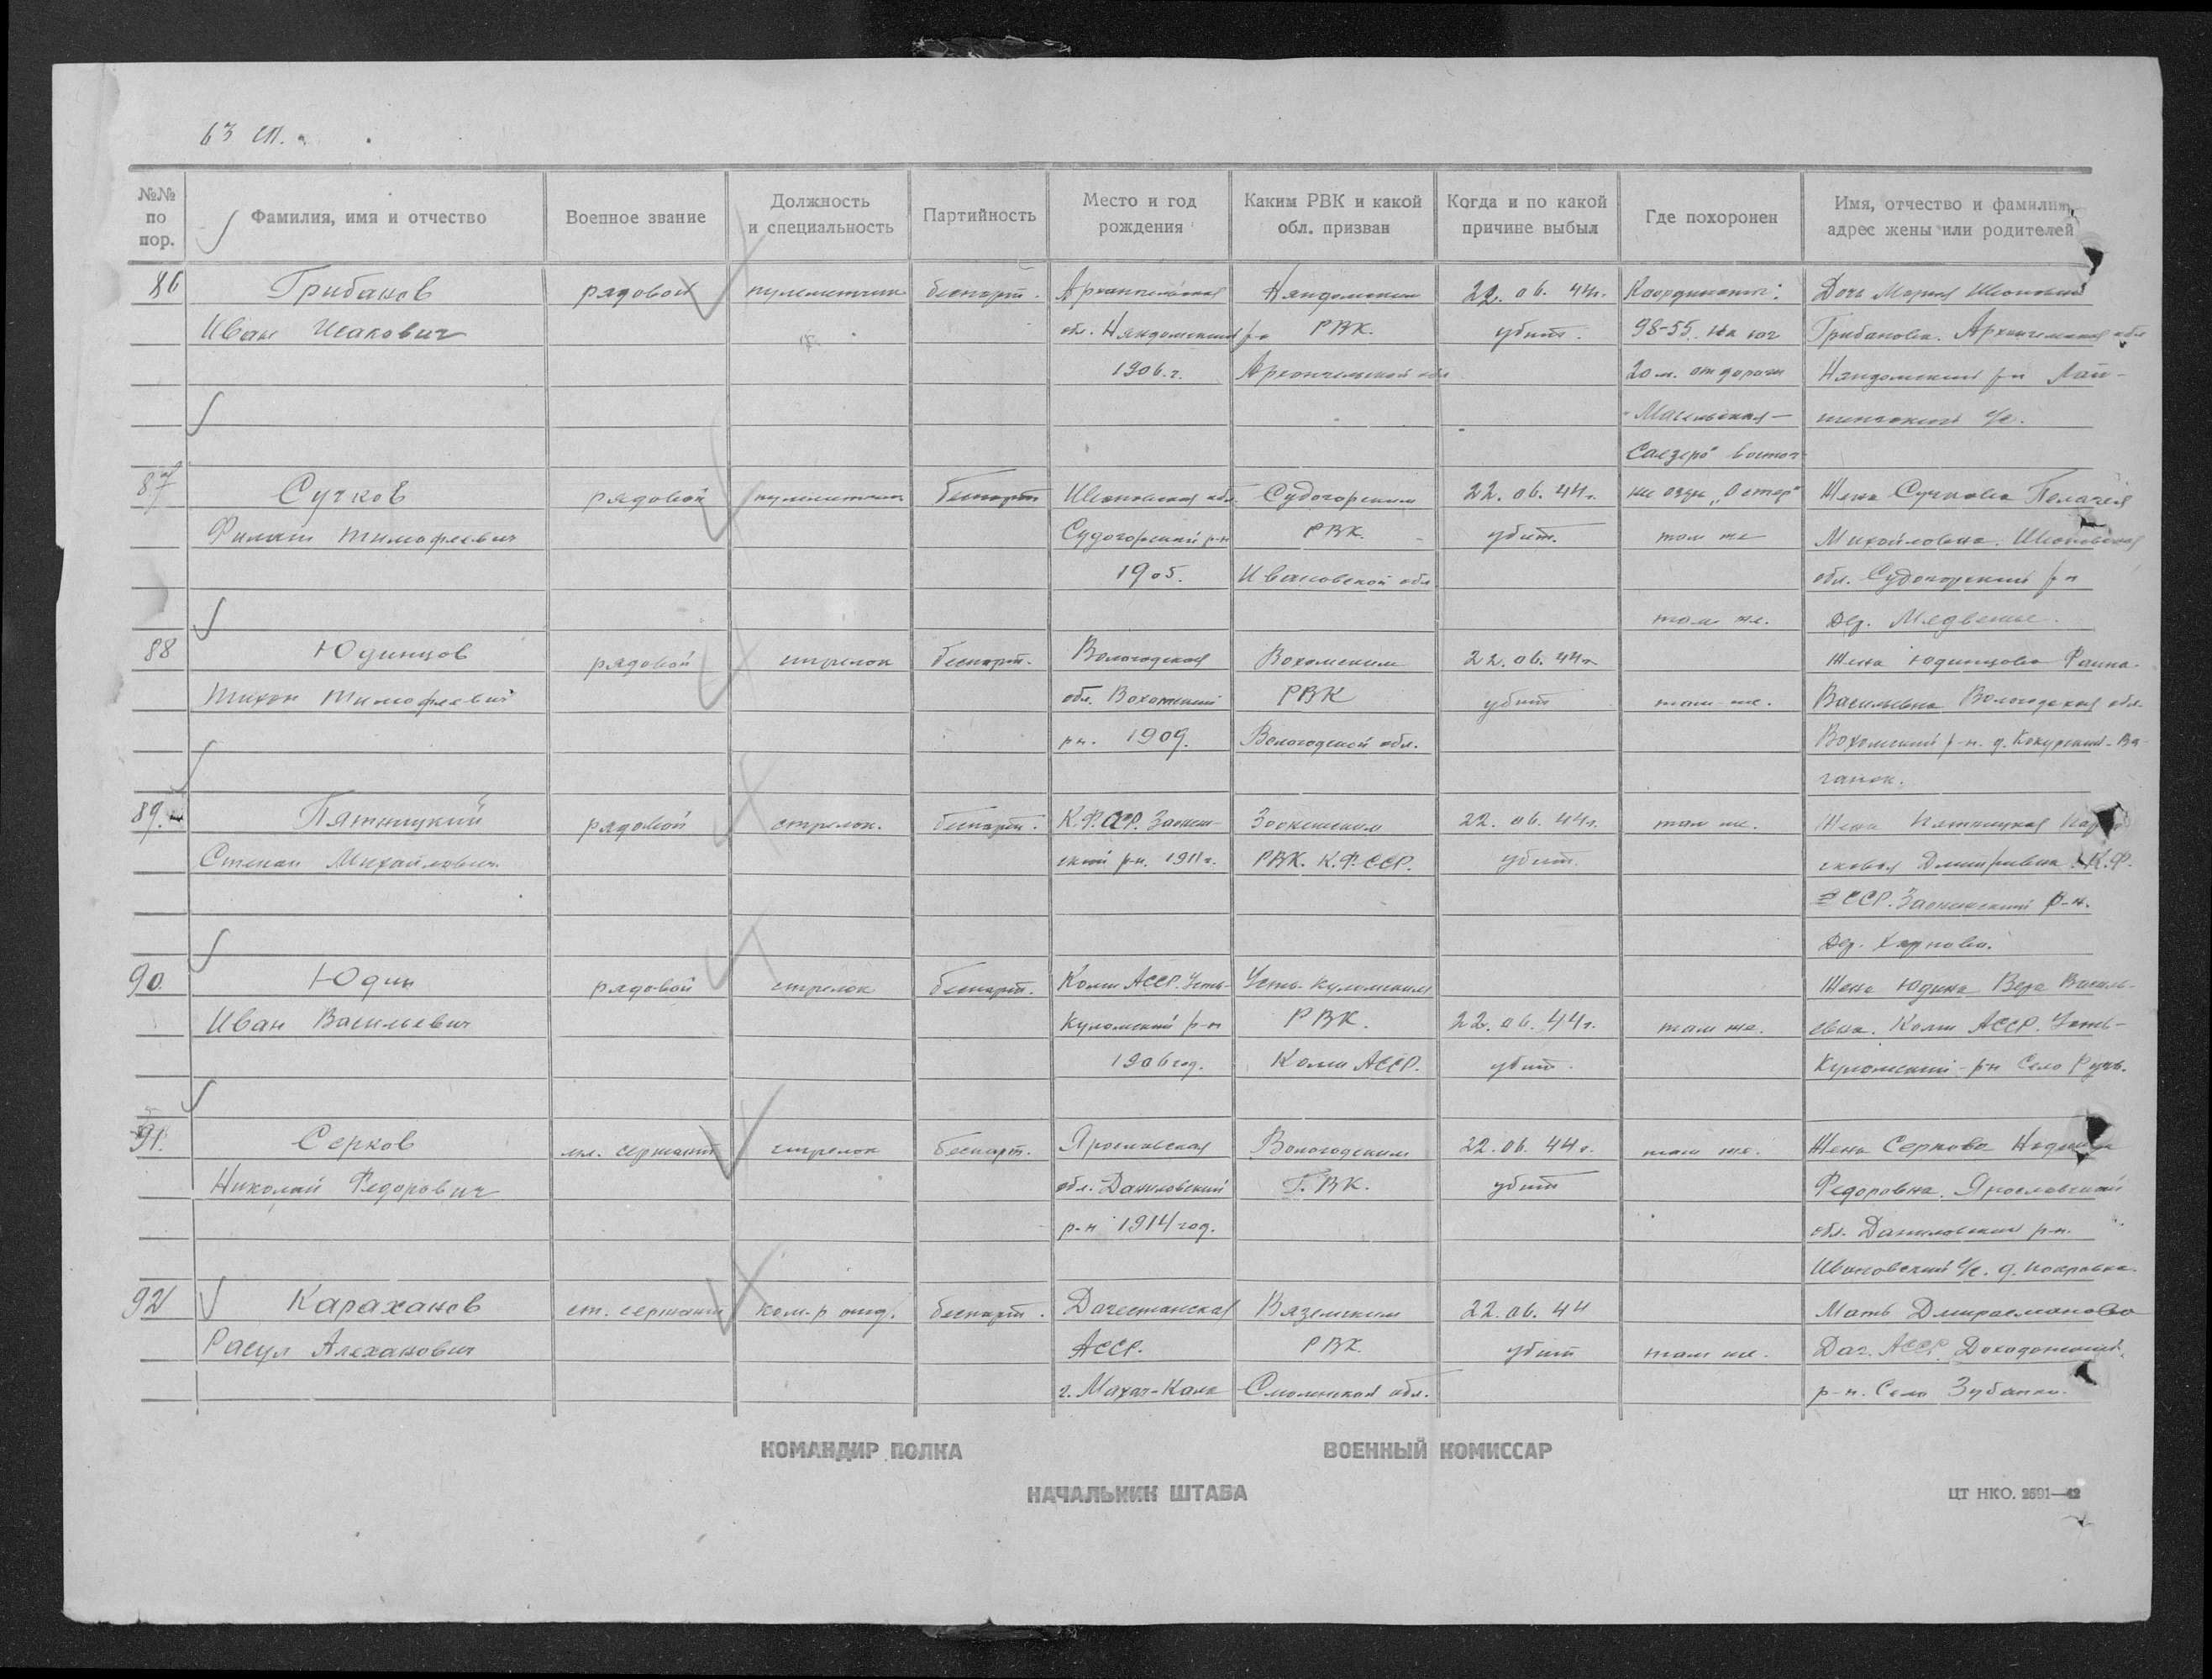 63 сп.
№№ по пор.
Фамилия, имя и отчество
Военное звание
Должность и специальность
Партийность
Место и год рождения
Каким РВК и какой обл. призван
Когда и по какой причине выбыл
Где похоронен
Имя, отчество и фамилия, адрес жены или родителей
86 Грибанов рядовой пулеметчик беспарт. Архангельская Няндомским 22.06.44г. Координаты: Дочь Мария Ивановна
Иван Исакович обл. Няндомский р-н РВК. убит. 98-55. на юг Грибанова. Архангельская обл
1906.г. Архангельской обл 20 м. от дороги Няндомский р-н
"Масельская- с/с.
Саезеро" восточ-
87 Сучков рядовой пулеметчик беспарт Ивановская обл. Судогорским 22.06.44г. нее озера Жена Сучкова Пелагея
Филипп Тимофеевич Судогорский р-н РВК. убит. там же Михайловна. Ивановская
1905. Ивановской обл обл. Судогорский р-н
там же. дер.
88 Юдинцов рядовой стрелок беспарт. Вологодская Вохомским 22.06.44г Жена Юдинцова
Тихон Тимофеевич обл. Вохомский РВК убит там-же. Васильевна Вологодская обл.
рн. 1909. Вологодской обл. Вохомский р-н. д.
89. Пятницкий рядовой стрелок. беспарт. К.Ф.ССР. Заонеж- Заонежским 22.06.44г. там же. Жена Пятницкая
Степан Михайлович. ский рн. 1911г. РВК. К.Ф.ССР. убит. Дмитриевна К.Ф.
ССР. Заонежский р-н.
дер. Карпово.
90. Юдин рядовой стрелок беспарт. Коми АССР. Усть- Усть-Куломским Жена Юдина Вера Василь-
Иван Васильевич Куломский р-н РВК. 22.06.44г. там же. евна. Коми АССР. Усть-
1906 год. Коми АССР. убит. Куломский р-н Село Ручь.
91. Серков мл. сержант стрелок беспарт. Ярославская Вологодским 22.06.44г. там же. Жена Серкова
Николай Федорович обл. Даниловский Г.ВК. убит Федоровна. Ярославская
р-н 1914 год. обл. Даниловский р-н.
Ивановский с/с. д. Покровка.
92 Караханов ст. сержант ком-р отд. беспарт. Дагестанская Вяземским 22.06.44 Мать
Расул Алаханович АССР. РВК. убит там же. Даг. АССР.
г. Махач-Кала Смоленской обл. р-н. Село
КОМАНДИР ПОЛКА
ВОЕННЫЙ КОМИССАР
НАЧАЛЬНИК ШТАБА
ЦТ НКО. 2591—42